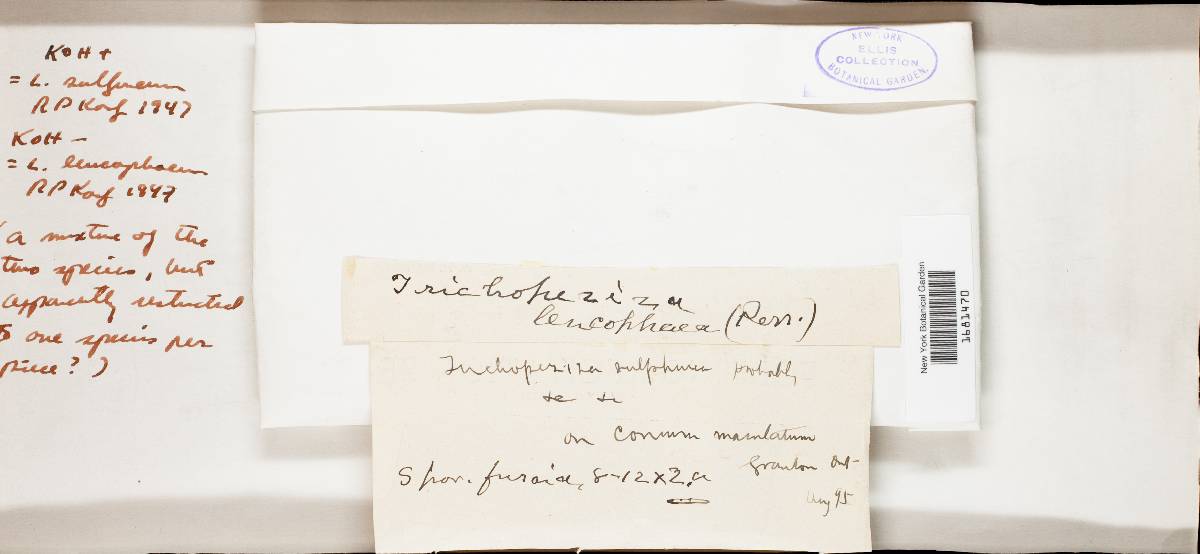 KOH +
= L. sulfureum
R P Korf 1947
KOH –
= L. leucophaeum
R P Korf 1947
(a mixture of the
two species, but
apparently restricted
to one species per
piece?)
NEW YORK
ELLIS
COLLECTION
BOTANICAL GARDEN.
Trichopeziza
leucophaea (Pers.)
Trichopeziza sulphurea probably
on Conium maculatum
Spor. fusoid, 8-12 x 2
Granton Ont
Aug 95
New York Botanical Garden
1681470